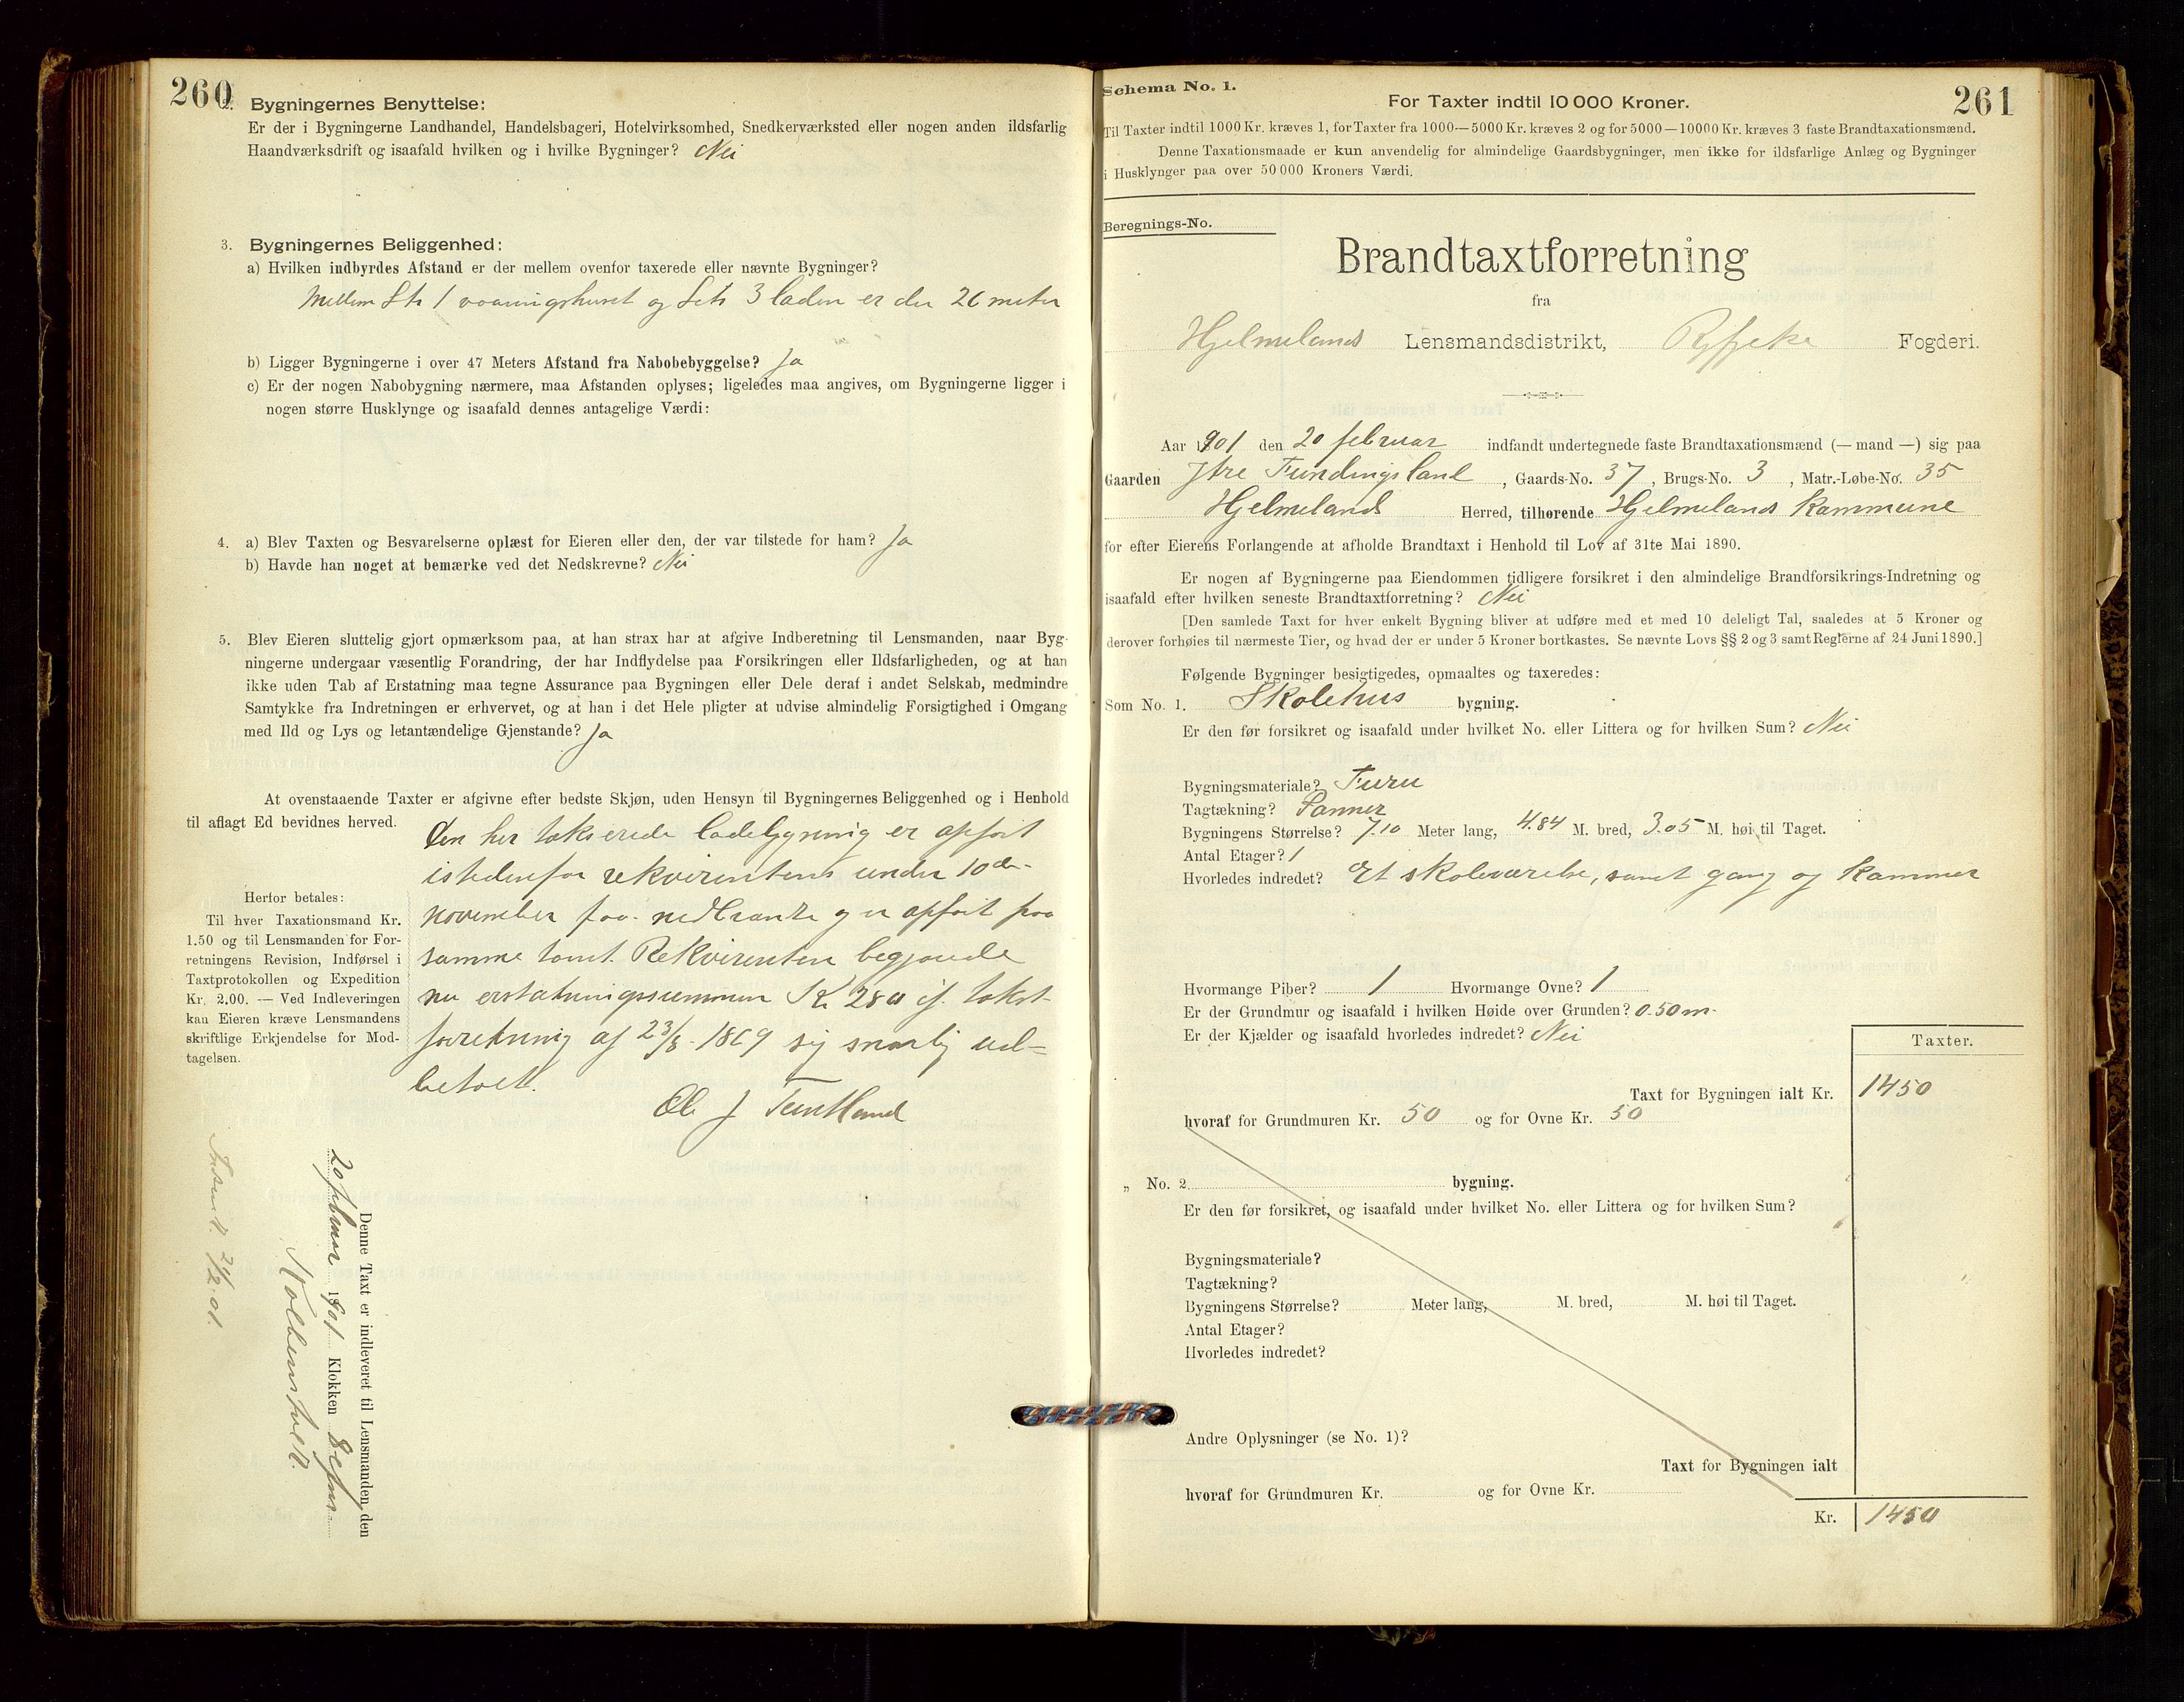 260
2. Bygningernes Benyttelse:
Er der i Bygningerne Landhandel, Handelsbageri, Hotelvirksomhed, Snedkerværksted eller nogen anden ildsfarlig
Haandværksdrift og isaafald hvilken og i hvilke Bygninger? Nei
3. Bygningernes Beliggenhed:
a) Hvilken indbyrdes Afstand er der mellem ovenfor taxerede eller nævnte Bygninger?
Mellem Litr 1 vaaningshuset og Litr 3 laden er der 26 meter
b) Ligger Bygningerne i over 47 Meters Afstand fra Nabobebyggelse? Ja
c) Er der nogen Nabobygning nærmere, maa Afstanden oplyses; ligeledes maa angives, om Bygningerne ligger i
nogen større Husklynge og isaafald dennes antagelige Værdi:
4. a) Blev Taxten og Besvarelserne oplæst for Eieren eller den, der var tilstede for ham? Ja
b) Havde han noget at bemærke ved det Nedskrevne? Nei
5. Blev Eieren sluttelig gjort opmærksom paa, at han strax har at afgive Indberetning til Lensmanden, naar Byg-
ningerne undergaar væsentlig Forandring, der har Indflydelse paa Forsikringen eller Ildsfarligheden, og at han
ikke uden Tab af Erstatning maa tegne Assurance paa Bygningen eller Dele deraf i andet Selskab, medmindre
Samtykke fra Indretningen er erhvervet, og at han i det Hele pligter at udvise almindelig Forsigtighed i Omgang
med Ild og Lys og letantændelige Gjenstande? Ja
At ovenstaaende Taxter er afgivne efter bedste Skjøn, uden Hensyn til Bygningernes Beliggenhed og i Henhold
til aflagt Ed bevidnes herved.
Den her takserede ladebygning er opført
istedenfor rekvirentens under 10de
november f. aa. nedbrændte og er opført paa
samme tomt. Rekvirenten begjærede
nu erstatningssummen Kr 280 if. takst-
forretning af 23/8 1869 sig snarlig ud-
betalt.
Herfor betales:
Til hver Taxationsmand Kr.
1.50 og til Lensmanden for For-
retningens Revision, Indførsel i
Taxtprotokollen og Expedition
Kr. 2.00. — Ved Indleveringen
kan Eieren kræve Lensmandens
skriftlige Erkjendelse for Mod-
tagelsen.
Denne Taxt er indleveret til Lensmanden, den
20 februar 1901 Klokken 8 efm
261
Schema No. 1.
For Taxter indtil 10 000 Kroner.
Til Taxter indtil 1000 Kr. kræves 1, for Taxter fra 1000—5000 Kr. kræves 2 og for 5000—10000 Kr. kræves 3 faste Brandtaxationsmænd.
Denne Taxationsmaade er kun anvendelig for almindelige Gaardsbygninger, men ikke for ildsfarlige Anlæg og Bygninger
i Husklynger paa over 50 000 Kroners Værdi.
Beregnings-No.
Brandtaxtforretning
fra
Hjelmelands Lensmandsdistrikt, Ryfylke Fogderi.
Aar 1901 den 20 februar indfandt undertegnede faste Brandtaxationsmænd (— mand —) sig paa
Gaarden Ytre Fundingsland, Gaards-No. 37, Brugs-No. 3, Matr.-Løbe-No. 35
Hjelmelands Herred, tilhørende Hjelmelands Kommune
for efter Eierens Forlangende at afholde Brandtaxt i Henhold til Lov af 31te Mai 1890.
Er nogen af Bygningerne paa Eiendommen tidligere forsikret i den almindelige Brandforsikrings-Indretning og
isaafald efter hvilken seneste Brandtaxtforretning? Nei
[Den samlede Taxt for hver enkelt Bygning bliver at udføre med et med 10 deleligt Tal, saaledes at 5 Kroner og
derover forhøies til nærmeste Tier, og hvad der er under 5 Kroner bortkastes. Se nævnte Lovs §§ 2 og 3 samt Reglerne af 24 Juni 1890.]
Følgende Bygninger besigtigedes, opmaaltes og taxeredes:
Som No. 1. Skolehus bygning.
Er den før forsikret og isaafald under hvilket No. eller Littera og for hvilken Sum? Nei
Bygningsmateriale? Furu
Tagtækning? Panner
Bygningens Størrelse? 7.10 Meter lang, 4.84 M. bred, 3.05 M. høi til Taget.
Antal Etager? 1
Hvorledes indredet? Et skoleværelse, samt gang og kammer
Hvormange Piber? 1 Hvormange Ovne? 1
Er der Grundmur og isaafald i hvilken Høide over Grunden? 0.50 m.
Er der Kjælder og isaafald hvorledes indredet? Nei
Taxter.
Taxt for Bygningen ialt Kr. 1450
hvoraf for Grundmuren Kr. 50 og for Ovne Kr. 50
„ No. 2 bygning.
Er den før forsikret, og isaafald under hvilket No. eller Littera og for hvilken Sum?
Bygningsmateriale?
Tagtækning?
Bygningens Størrelse? Meter lang, M. bred, M. høi til Taget.
Antal Etager?
Hvorledes indredet?
Andre Oplysninger (se No. 1)?
Taxt for Bygningen ialt
hvoraf for Grundmuren Kr. og for Ovne Kr.
Kr. 1450